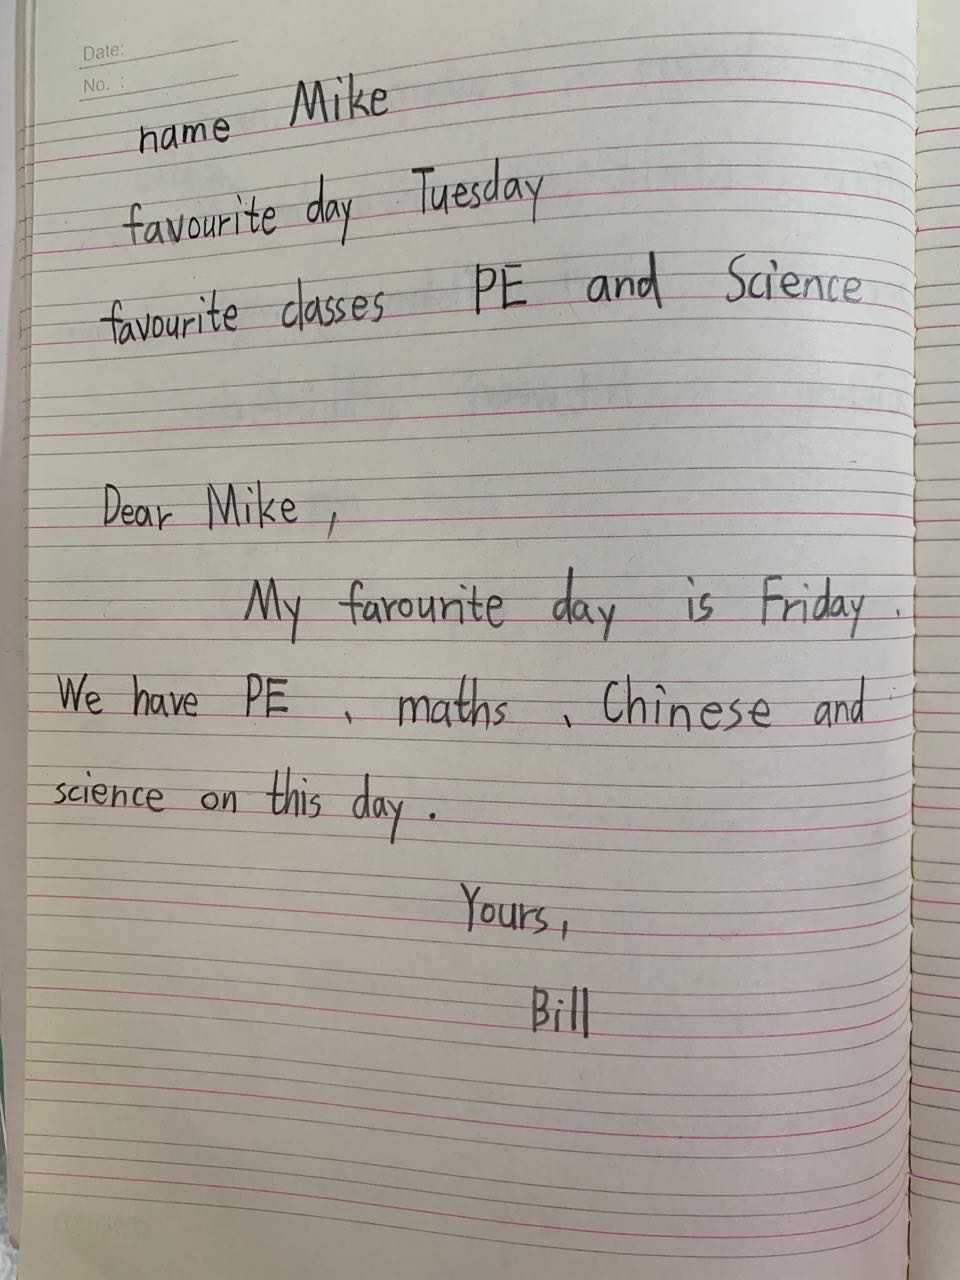 Date:
No. :
name Mike
favourite day Tuesday
favourite classes PE and Science
Dear Mike,
My farourite day is Friday.
We have PE、maths、Chinese and
science on this day.
Yours,
Bill